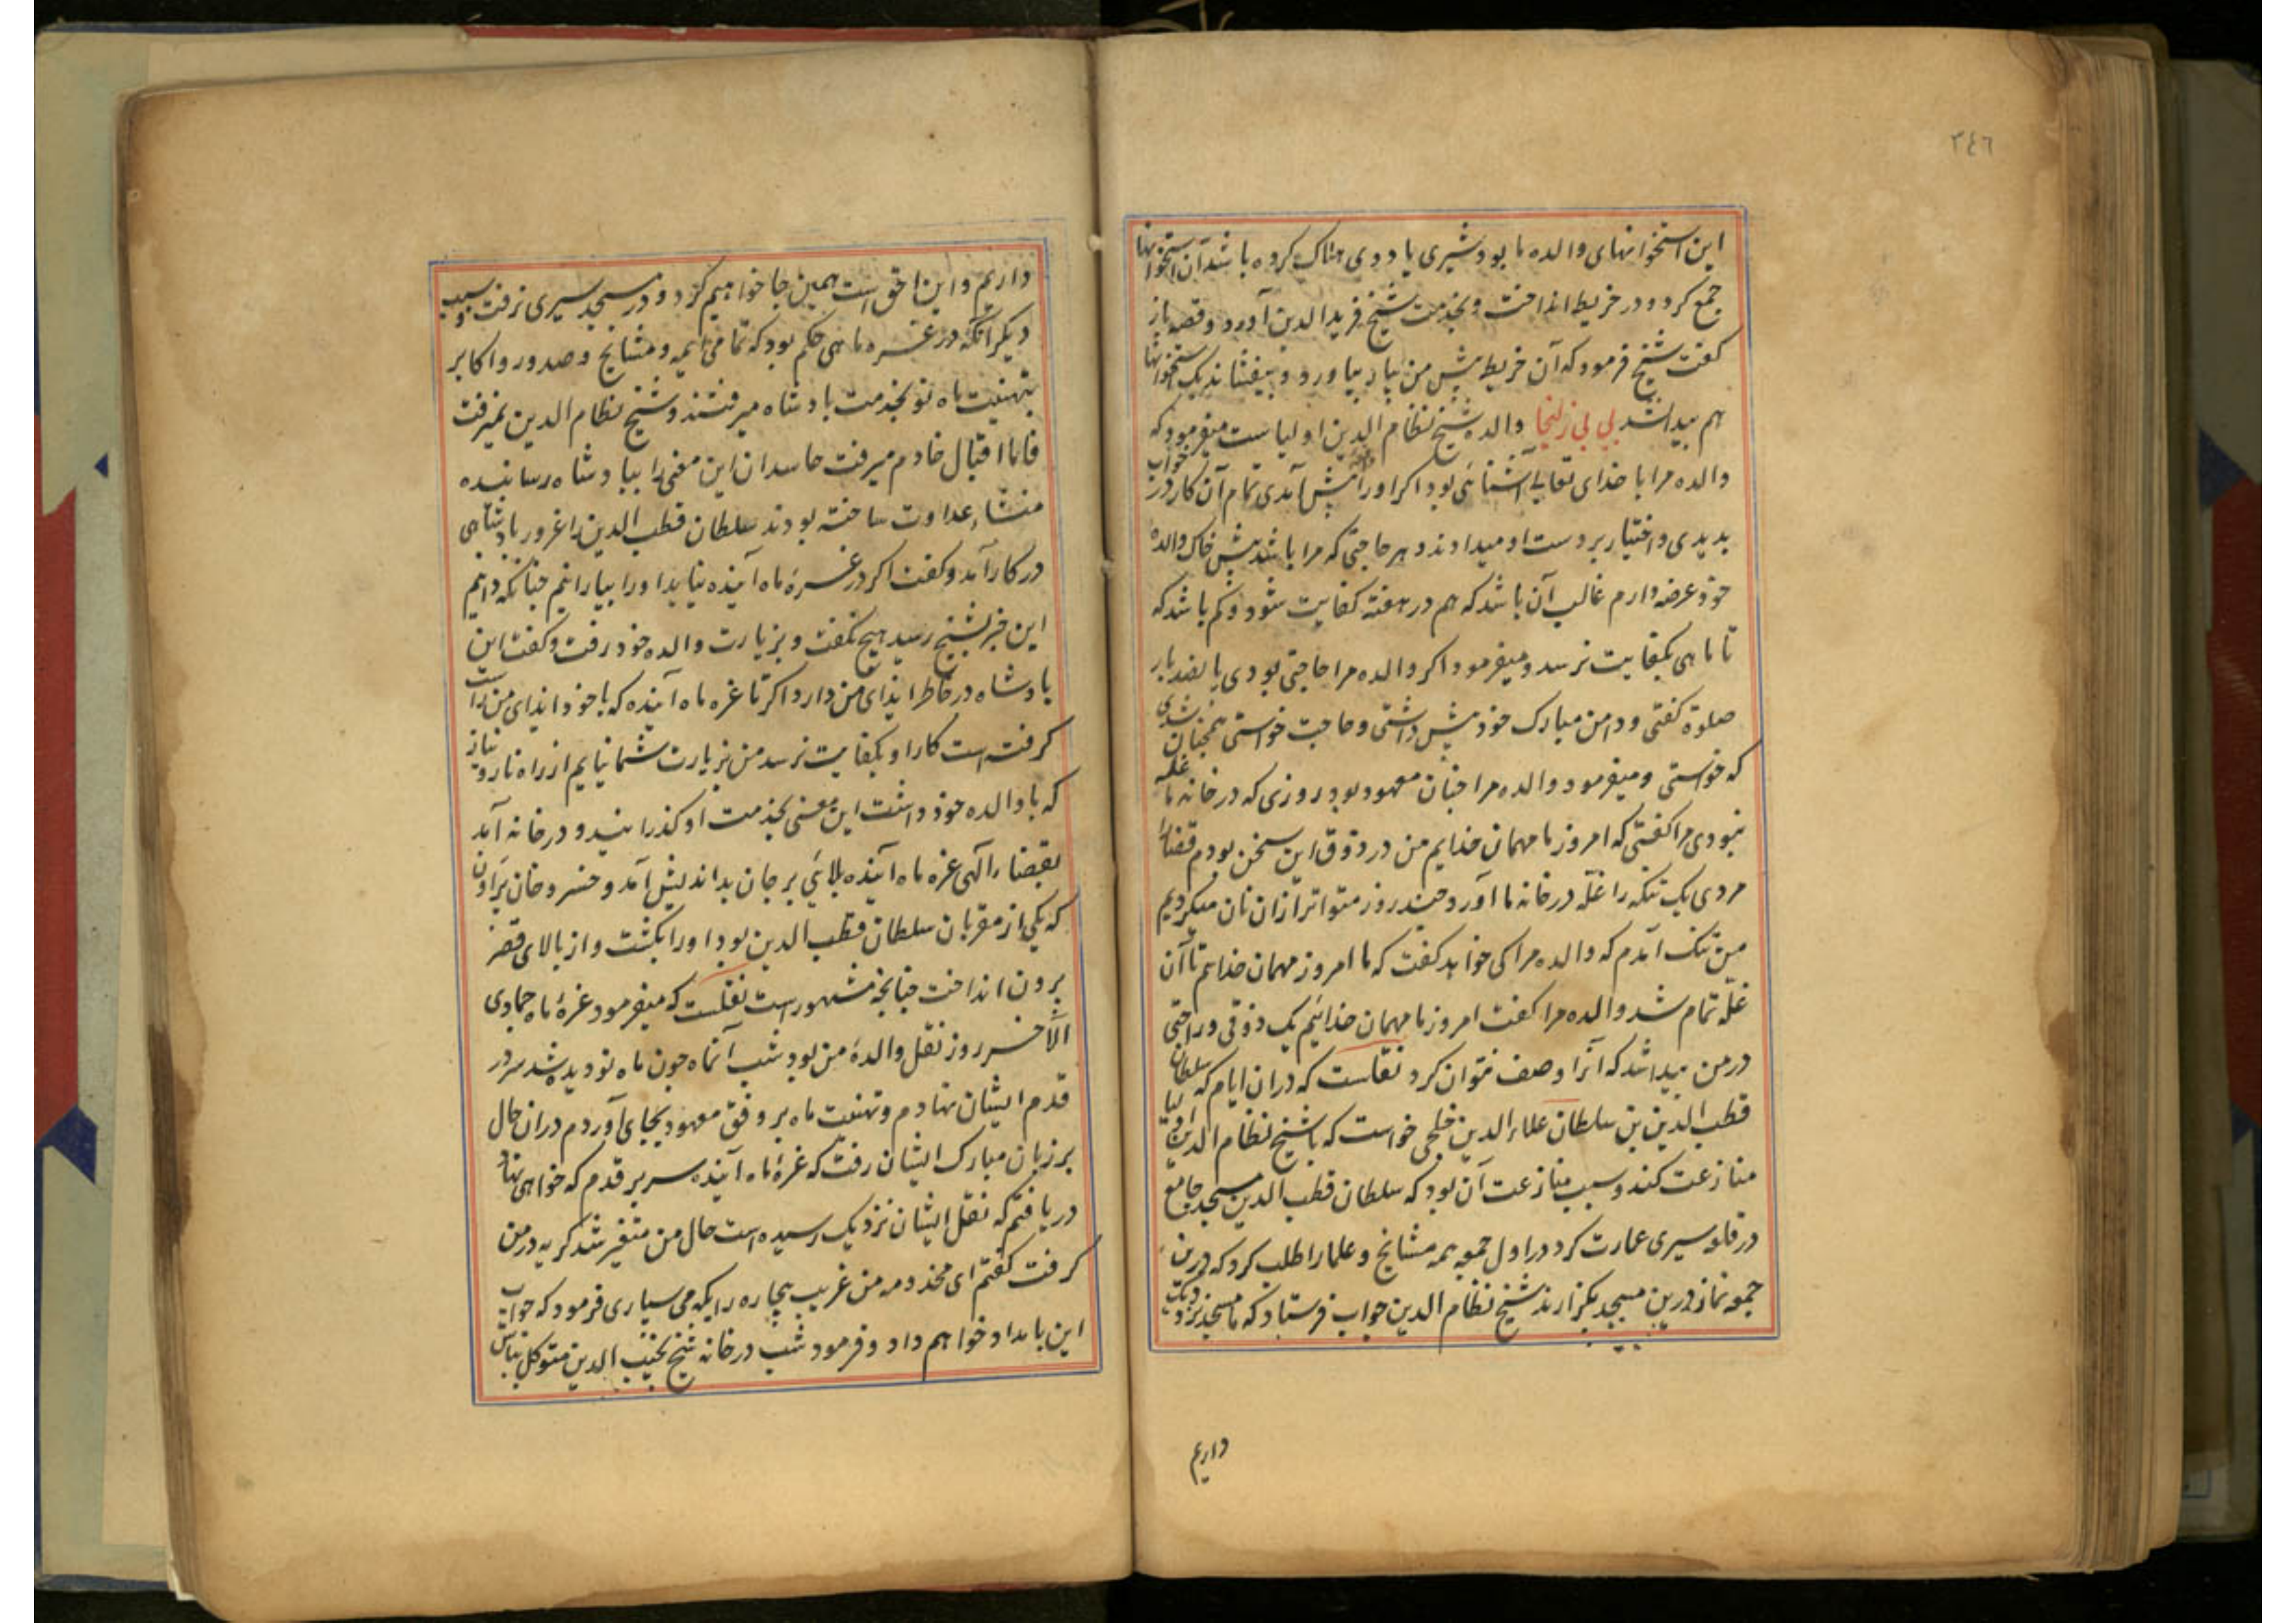 ٣٤٦
این استخوانهای والده ما بود شیری یا ددی هلاک کرده باشد آن استخوانها
جمع کرد و در خریطه انداخت و بخدمت شیخ فرید الدین آورد و قصه باز
کفت شیخ فرمود که آن خریطه پیش من بیار بیاورد و بیفشاند یک استخوانها
هم پیدا نشد بی بی زلیخا والده شیخ نظام الدین اولیاست میفرمود که
والده مرا با خدای تعالی آشنائی بود اگر او را پیش آمدی تمام آن کار در خواب
بدیدی و اختیار بر دست او میدادند و هر حاجتی که مرا باشد پیش خاک والده
خود عرضه دارم غالب آن باشد که هم در هفته کفایت شود و کم باشد که
تا ماهی بکفایت نرسد و میفرمود اگر والده مرا حاجتی بودی پانصد بار
صلوة کفتی و دامن مبارک خود پیش داشتی و حاجت خواستی همچنان شدی
که خواستی و میفرمود والده مرا چنان معهود بود روزی که در خانه ما غله
نبودی مرا کفتی که امروز ما مهمان خدایم من در ذوق این سخن بودم قضا را
مردی یک تنکه را غله در خانه ما آورد چند روز متواتر ازان نان میکردیم
من تنک آمدم که والده مرا کی خواهد کفت که ما امروز مهمان خدایم تا آن
غله تمام شد والده مرا کفت امروز ما مهمان خدائیم یک ذوقی و راحتی
در من پیدا شد که آنرا وصف نتوان کرد نقلست که دران ایام که سلطان
قطب الدین بن سلطان علاء الدین خلجی خواست که با شیخ نظام الدین اولیا
منازعت کند و سبب منازعت آن بود که سلطان قطب الدین مسجد جامع
در قلعه سیری عمارت کرد در اول جمعه همه مشایخ و علما را طلب کرد که درین
جمعه نماز درین مسجد بگزارند شیخ نظام الدین جواب فرستاد که ما مسجد نزدیک
داریم
داریم و این احق است همین جا خواهیم کزد و در مسجد سیری نرفت و سبب
دیکر آنکه در غره ماهی حکم بود که تمامی ائمه و مشایخ و صدور و اکابر
بتهنیت ماه نو بخدمت بادشاه میرفتند و شیخ نظام الدین نمیرفت
فاما اقبال خادم میرفت حاسدان این معنی را ببادشاه رسانیده
منشاء عداوت ساخته بودند سلطان قطب الدین را غرور بادشاهی
در کار آمد و کفت اکر در غره ماه آینده نیاید او را بیارانیم چنانکه دانیم
این خبر بشیخ رسید هیچ نکفت و بزیارت والده خود رفت و کفت این
بادشاه در خاطر ایذای من دارد اکر تا غره ماه آینده که با خود ایذای من راست
کرفته است کار او بکفایت نرسد من بزیارت شما نیایم از راه ناز و نیاز
که با والده خود داشت این معنی بخدمت او کذرانید و در خانه آمد
بقضاء آلهی غره ماه آینده بلائی بر جان بداندیش آمد و خسرو خان براون
که یکی از مقربان سلطان قطب الدین بود او را بکشت و از بالای قصر
برون انداخت چنانچه مشهور است نقلست که میفرمود غره ماه جمادی
الآخر روز نقل والده من بود شب آنماه چون ماه نو دیده شد سر در
قدم ایشان نهادم و تهنیت ماه بر وفق معهود بجای آوردم دران حال
بر زبان مبارک ایشان رفت که غره ماه آینده سر بر قدم که خواهی نهاد
دریافتم که نقل ایشان نزدیک رسیده است حال من متغیر شد کریه در من
کرفت کفتم ای مخدومه من غریب بیچاره را بکه می سپاری فرمود که جواب
این بامداد خواهم داد و فرمود شب در خانه شیخ نجیب الدین متوکل بباش